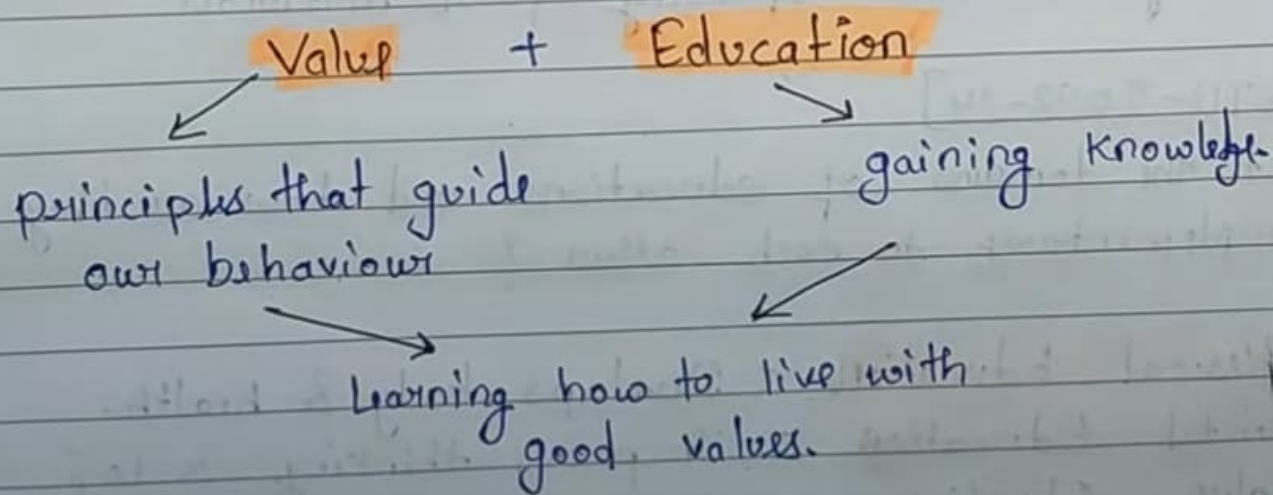 Value + Education
principles that guide
our behaviour
gaining knowledge.
Learning how to live with
good values.